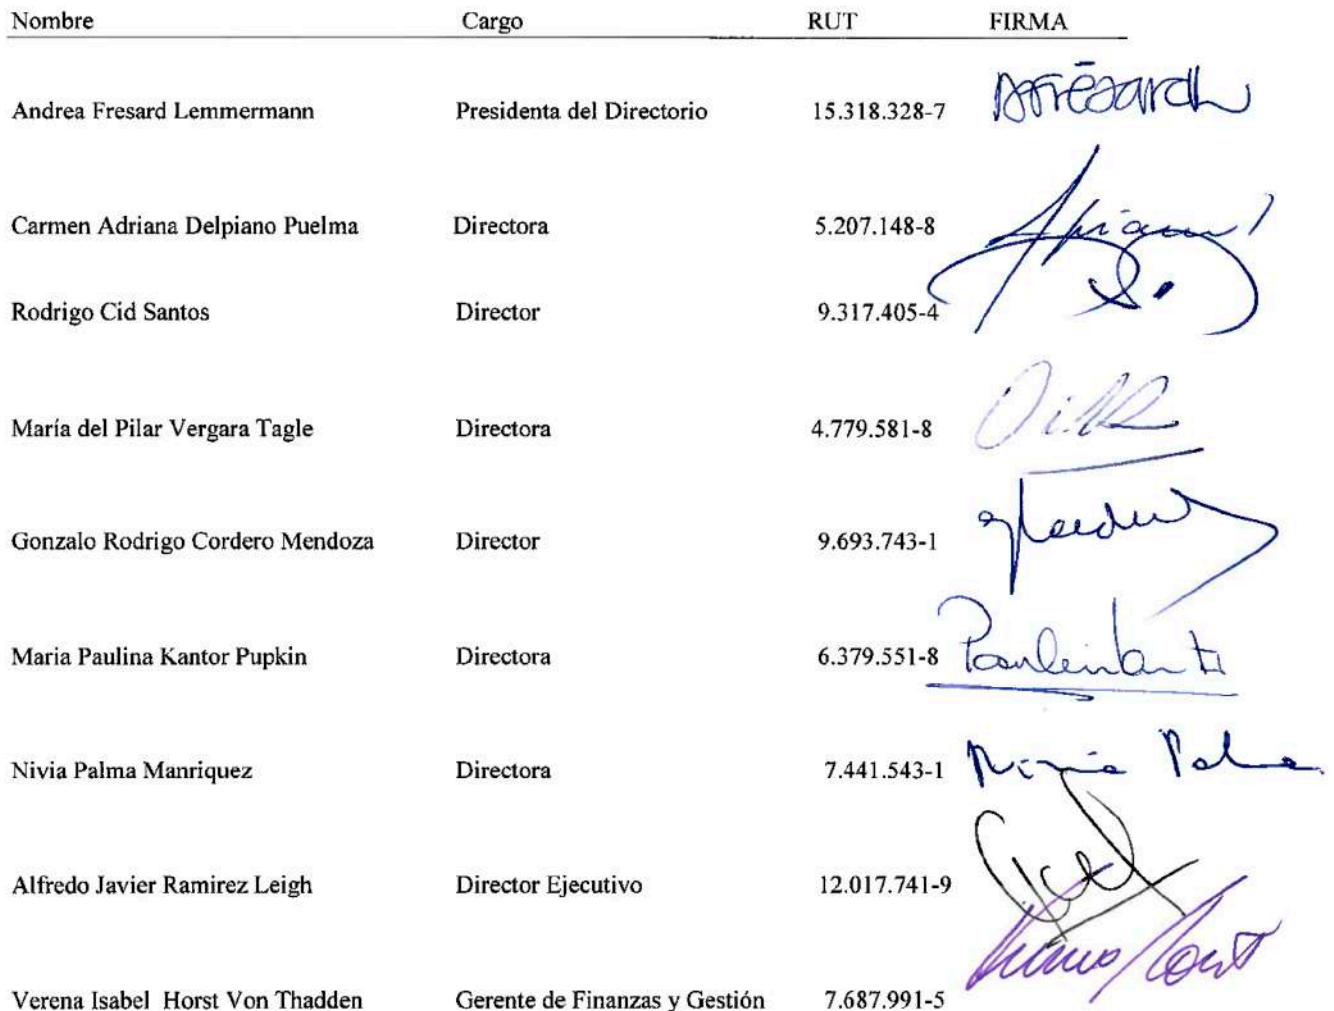 Nombre Cargo RUT FIRMA
Andrea Fresard Lemmermann Presidenta del Directorio 15.318.328-7
Carmen Adriana Delpiano Puelma Directora 5.207.148-8
Rodrigo Cid Santos Director 9.317.405-4
María del Pilar Vergara Tagle Directora 4.779.581-8
Gonzalo Rodrigo Cordero Mendoza Director 9.693.743-1
Maria Paulina Kantor Pupkin Directora 6.379.551-8
Nivia Palma Manriquez Directora 7.441.543-1 Nivia Palma
Alfredo Javier Ramirez Leigh Director Ejecutivo 12.017.741-9
Verena Isabel Horst Von Thadden Gerente de Finanzas y Gestión 7.687.991-5